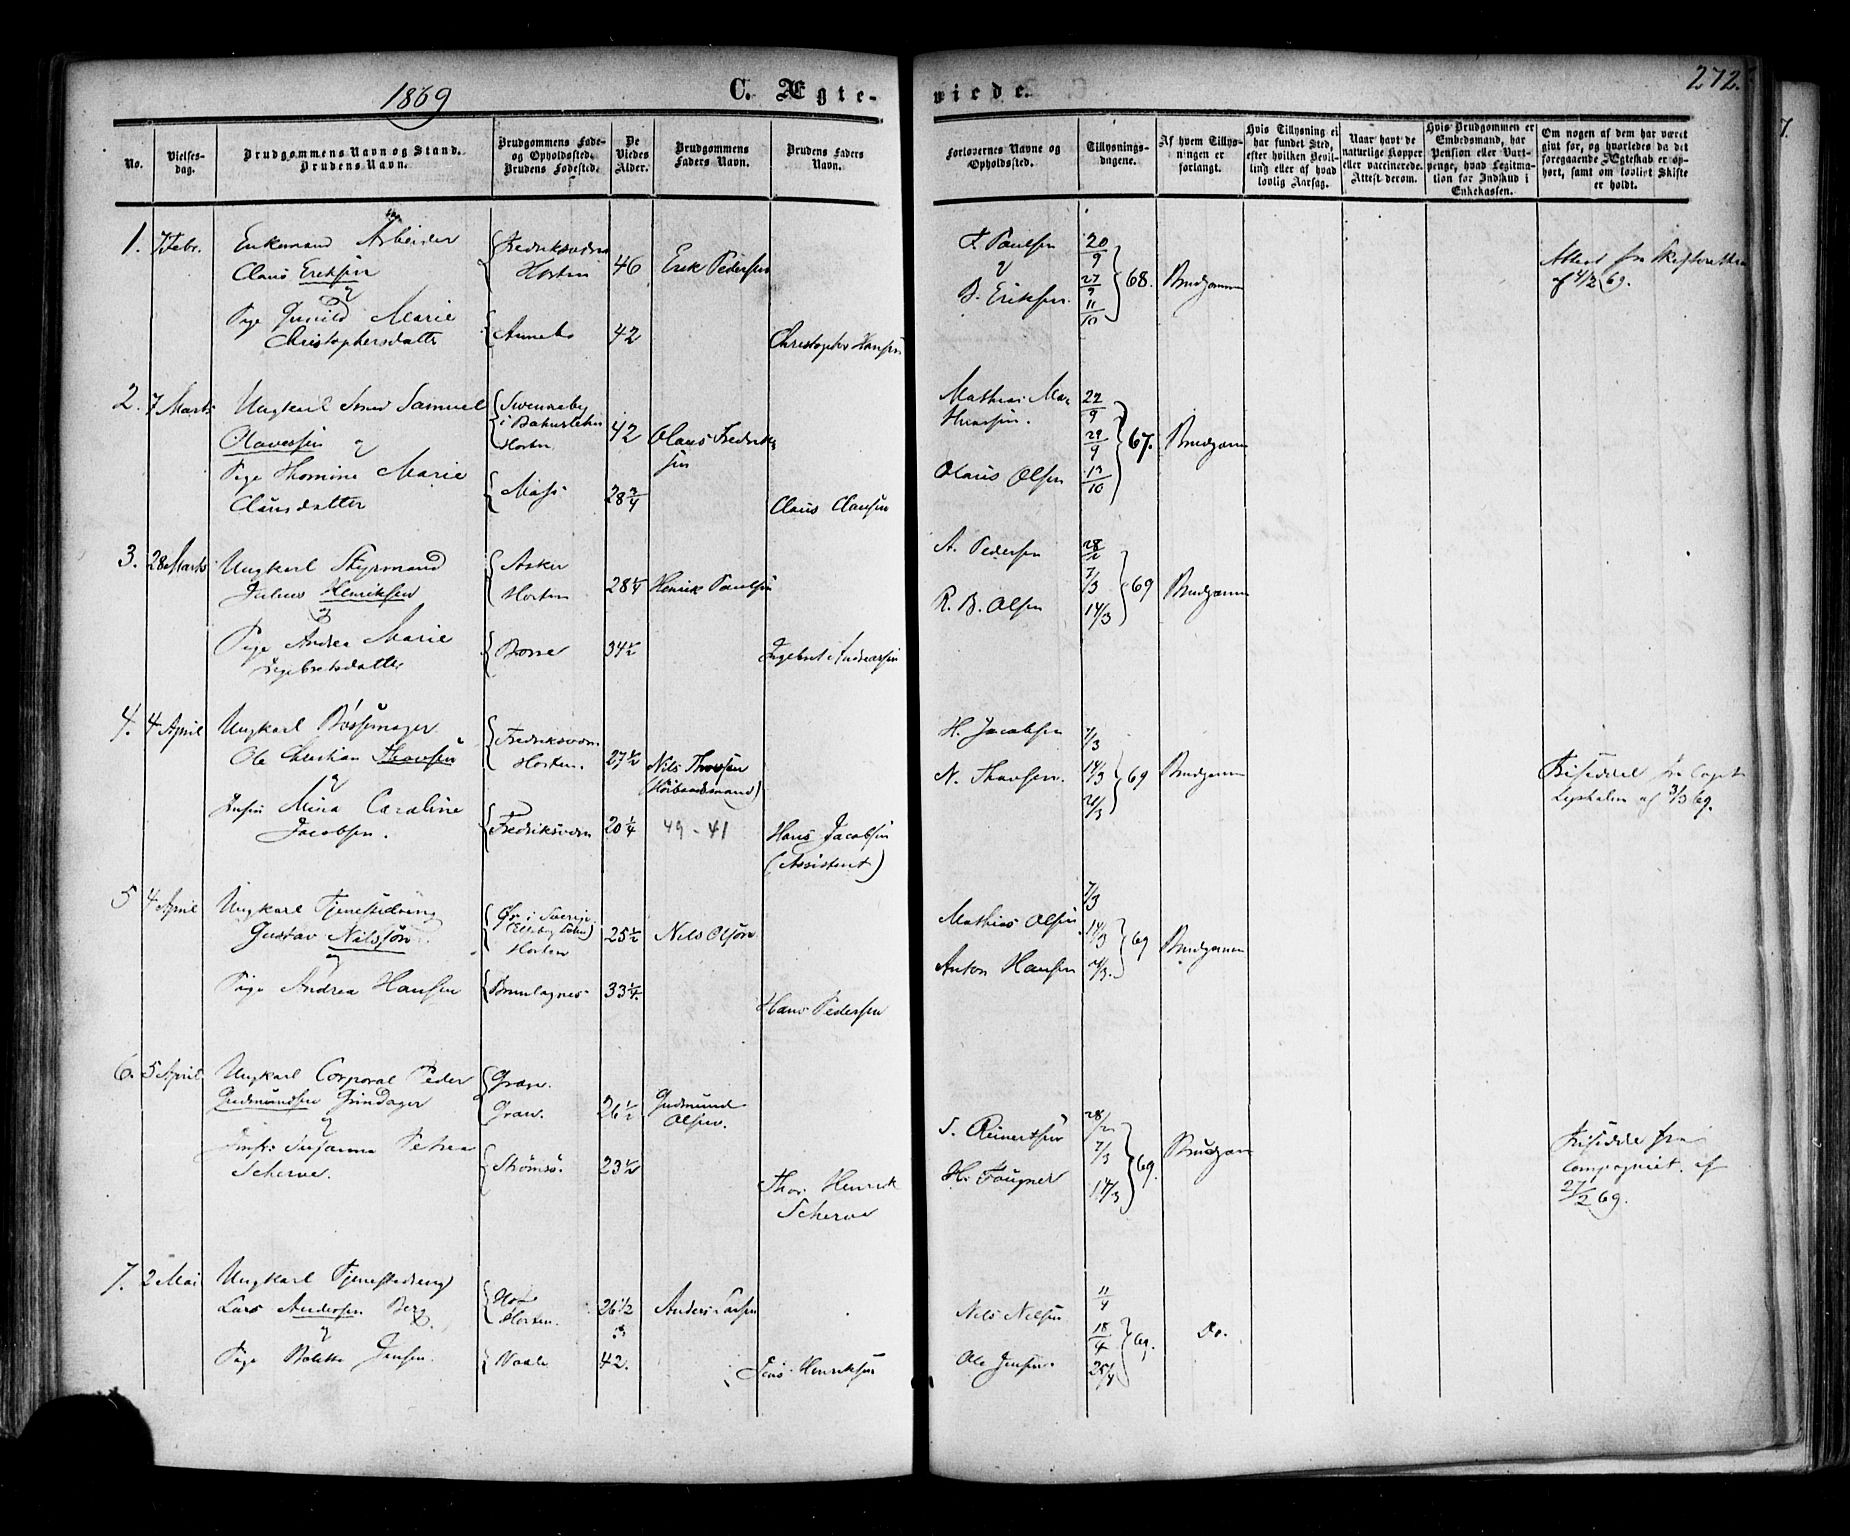 1869
C. Ægte-
viede.
272.
7.
No.
Vielses-
dag.
Brudgommens Navn og Stand.
Brudens Navn.
Brudgommens Føde-
og Opholdssted.
Brudens Fødested.
De
Viedes
Alder.
Brudgommens
Faders Navn.
Brudens Faders
Navn.
Forlovernes Navne og
Opholdssted.
Tillysnings-
dagene.
Af hvem Tillys-
ningen er
forlangt.
Hvis Tillysning ei
har fundet Sted,
efter hvilken Bevil-
ling eller af hvad
lovlig Aarsag.
Naar havt de
naturlige Kopper
eller vaccinerede.
Attest derom.
Hvis Brudgommen er
Embedsmand, har
Pension eller Vart-
penge, hvad Legitima-
tion for Indskud i
Enkekassen.
Om nogen af dem har været
gift før, og hvorledes da det
foregaaende Ægteskab er op-
hørt, samt om lovligt Skifte
er holdt.
1. 7 Febr. Enkemand Arbeider
Claus Eriksen
&
Pige Gunild Marie
Christophersdatter
Fredriksværn
Horten
Anneba
46
42
Erik Pedersen
Christopher Hansen
F. Paulsen
&
B. Eriksen.
20/9
27/9
11/10
68.
Brudgommen
Attest fra Skifteretten
af 4/2 69.
2. 7 Marts Ungkarl Smed Samuel
Olavessen &
Pige Thomine Marie
Clausdatter
Svenneby
i Bahuslehn
Horten
Moss
42
28 3/4
Olaus Fredrik-
sen
Claus Clausen
Mathias Ma-
thiassen.
Olaus Olsen
22/9
29/9
13/10
67.
Brudgommen
3. 28 Marts Ungkarl Styrmand
Julius Henriksen
&
Pige Andrea Marie
Ingebretsdatter
Asker
Horten
Borre
28 1/4
34 1/2
Henrik Paulsen
Ingebret Andreassen
A. Pedersen
R. B. Olsen
28/2
7/3
14/3
69
Brudgommen
4. 4 April Ungkarl Bøssemager
Ole Christian Thovsen
&
Jfr. Mina Caroline
Jacobsen.
Fredriksværn
Horten.
Fredriksværn
27 1/2
20 1/4
Nils Thovsen
49 - 41
Hans Jacobsen
(Assistent)
H. Jacobsen
N. Thovsen.
7/3
14/3
21/3
69
Brudgommen
5 4 April Ungkarl Tjenestedreng
Gustav Nilssøn
&
Pige Andrea Hansen
Ør i Sverige
Horten
Brunlagnes
25 1/2
33 1/4.
Nils Olsøn
Hans Pedersen
Mathias Olsen
Anton Hansen
7/3
14/3
21/3.
69
Brudgommen
6. 5 April. Ungkarl Corporal Peder
Gudmundsen Grindager
&
Susanna Petrea
Scherve.
Gran.
Gran.
Strømsø.
26 1/2
23 1/2
Gudmund
Olsen.
Thor Henrik
Scherve
S. Reinertsen
H. Fougner
28/2
7/3
14/3
69.
Brudgom
Compagniet. af
27/2 69.
7. 2 Mai Ungkarl Tjenestedreng
Lars Andersen Berg
&
Pige Bolette Jensen.
Hof
Horten.
Vaale
26 1/2
42.
Anders Larsen
Jens Henriksen
Nils Nilsen
Ole Jensen.
11/4
18/4
25/4
69.
Do.